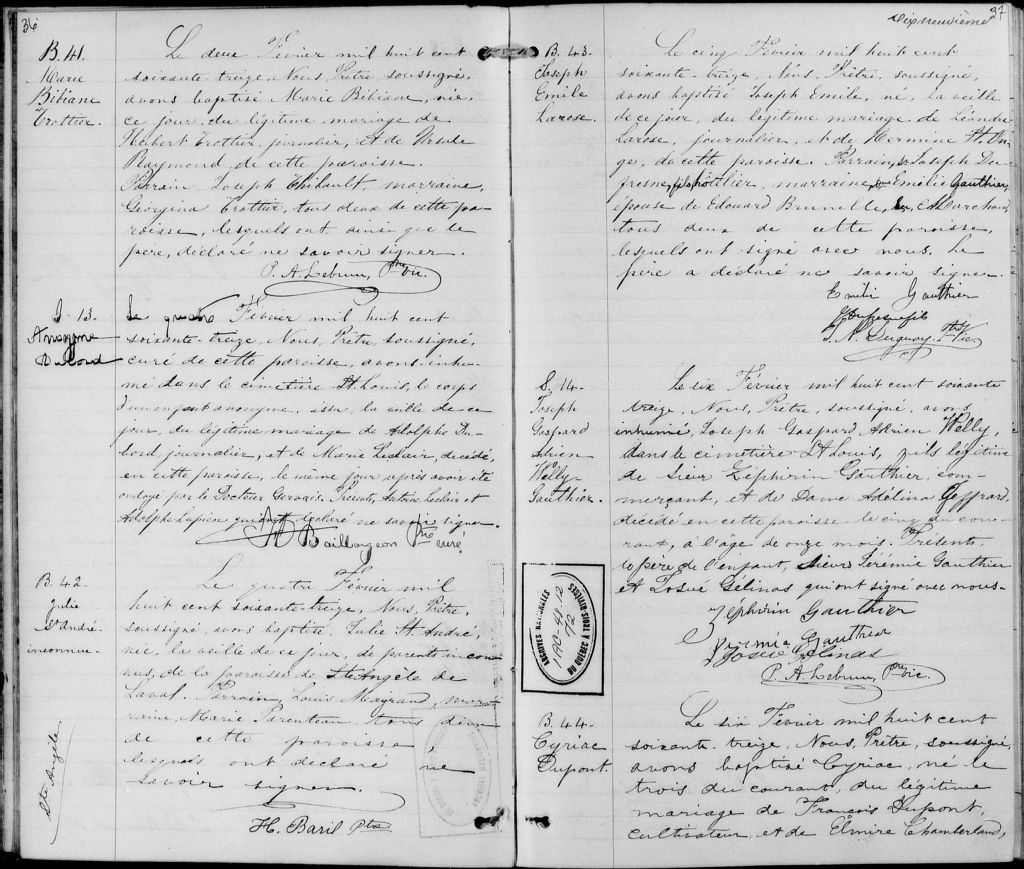 36
B. 41.
Marie
Bibiane
Trottier.
Le deux Février mil huit cent
soixante-treize, Nous, Prêtre, soussigné,
avons baptisé Marie Bibiane, née,
ce jour, du légitime mariage de
Hubert Trottier, journalier, et de Ursule
Raymond de cette paroisse.
Parrain, Joseph Thibault, marraine,
Georgina Trottier, tous deux de cette pa-
roisse, lesquels ont ainsi que le
père, déclaré ne savoir signer.
P. A. Lebrun, Ptre Vic.
S - 13.
Anonyme
Dubord
Le quatre Février mil huit cent
soixante-treize, Nous, Prêtre, soussigné,
curé de cette paroisse, avons inhu-
mé dans le cimetière St. Louis, le corps
d'un enfant anonyme, issu, la veille de ce
jour, du légitime mariage de Adolphe Du-
bord, journalier, et de Marie décédé,
en cette paroisse, le même jour, après avoir été
ondoyé par le Docteur Gervais. Présents, Antoine Leclair et
Adolphe Lupien qui ont déclaré ne savoir signer.
Baillargeon Ptre curé
B. 42.
Julie
St. André.
inconnue.
Ste Angèle
Le quatre Février mil
huit cent soixante-treize, Nous, Prêtre,
soussigné, avons baptisé Julie St. André,
née, la veille de ce jour, de parents incon-
nus, de la paroisse de Ste Angèle de
Laval. Parrain, Louis Maigrand, mar-
raine, Marie Parenteau, tous deux
de cette paroisse,
lesquels ont déclaré ne
savoir signer.
H. Baril Ptre
37
dixneuvième
B. 43.
Joseph
Emile
Larose.
Le cinq Février mil huit cent
soixante-treize, Nous, Prêtre, soussigné,
avons baptisé Joseph Emile, né, la veille
de ce jour, du légitime mariage de Léandre
Larose, journalier, et de Hermine St. On-
ge, de cette paroisse. Parrain, Joseph Du-
fresne, fils hôtelier, marraine, Emilie Gauthier,
épouse de Edouard Brunelle, Ec. Marchand,
tous deux de cette paroisse,
lesquels ont signé avec nous. Le
père a déclaré ne savoir signer.
Emilie Gauthier
J Dufresne fils
J. N. Duguay, Ptre Vic
S. 14.
Joseph
Gaspard
Adrien
Welly
Gauthier.
Le six Février mil huit cent soixante
treize, Nous, Prêtre, soussigné, avons
inhumé, Joseph Gaspard Adrien Welly,
dans le cimetière St Louis, fils légitime
de Sieur Zéphirin Gauthier, com-
merçant, et de Dame Adélina Geffrard,
décédé en cette paroisse le cinq du cou-
rant, à l'âge de onze mois. Présents,
le père de l'enfant, Sieurs Jérémie Gauthier
et Josué Gélinas qui ont signé avec nous.
Zéphirin Gauthier
Jérémie Gauthier
Josué Gélinas
P. A. Lebrun, Ptre Vic.
ARCHIVES NATIONALES
DU QUÉBEC À TROIS-RIVIÈRES
B. 44.
Cyriac
Dupont.
Le six Février mil huit cent
soixante-treize, Nous, Prêtre, soussigné,
avons baptisé Cyriac, né le
trois du courant, du légitime
mariage de François Dupont,
cultivateur, et de Elmire Chamberland,